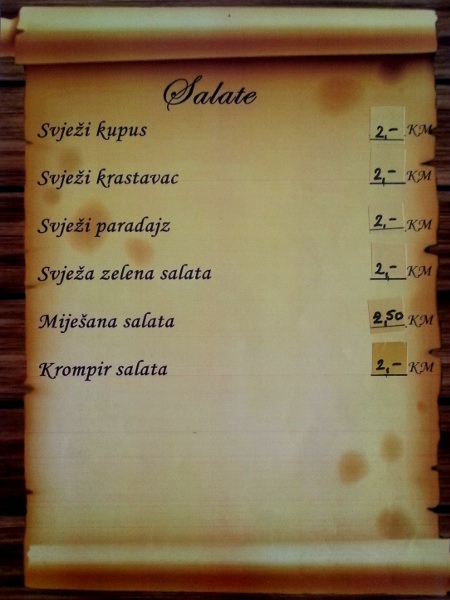 Salate
Svježi kupus 2,- KM
Svježi krastavac 2,- KM
Svježi paradajz 2,- KM
Svježa zelena salata 2,- KM
Miješana salata 2,50 KM
Krompir salata 2,- KM